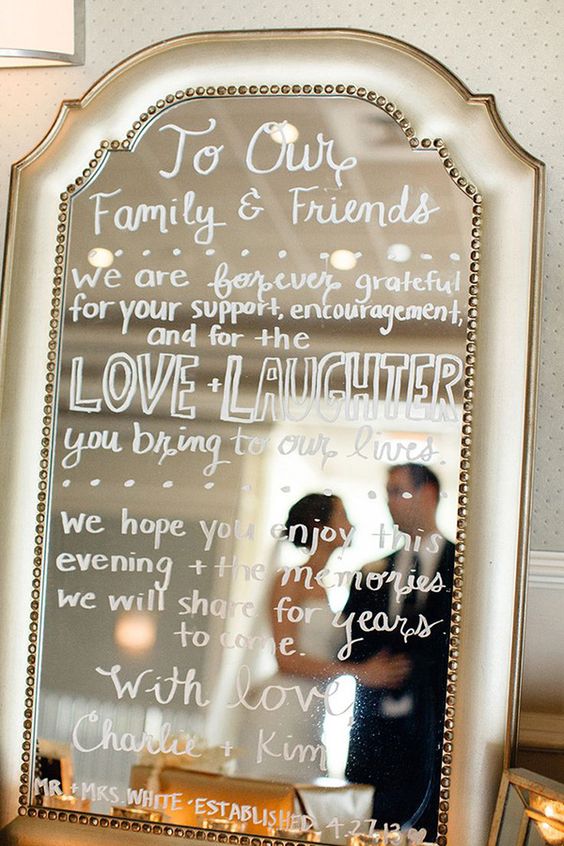 To Our
Family & Friends
We are forever grateful
for your support, encouragement,
and for the
LOVE + LAUGHTER
you bring to our lives.
We hope you enjoy this
evening + the memories
we will share for years
to come.
With love,
Charlie + Kim
MR. + MRS. WHITE · ESTABLISHED 4.27.13